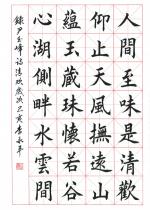 人間至味是清歡
仰止天風撫遠山
蘊玉藏珠懷若谷
心湖側畔水雲間
錄尹玉峰詩清歡歲次寅李永平